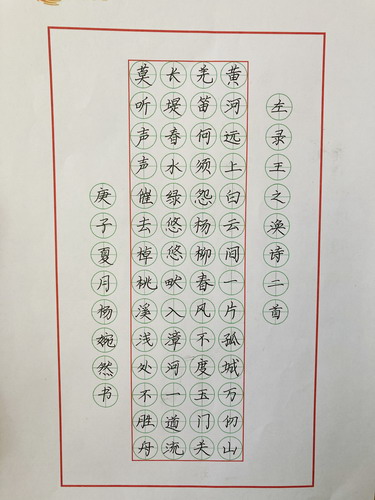 左录王之涣诗二首
黄河远上白云间一片孤城万仞山
羌笛何须怨杨柳春风不度玉门关
长堤春水绿悠悠畎入漳河一道流
莫听声声催去棹桃溪浅处不胜舟
庚子夏月杨婉然书